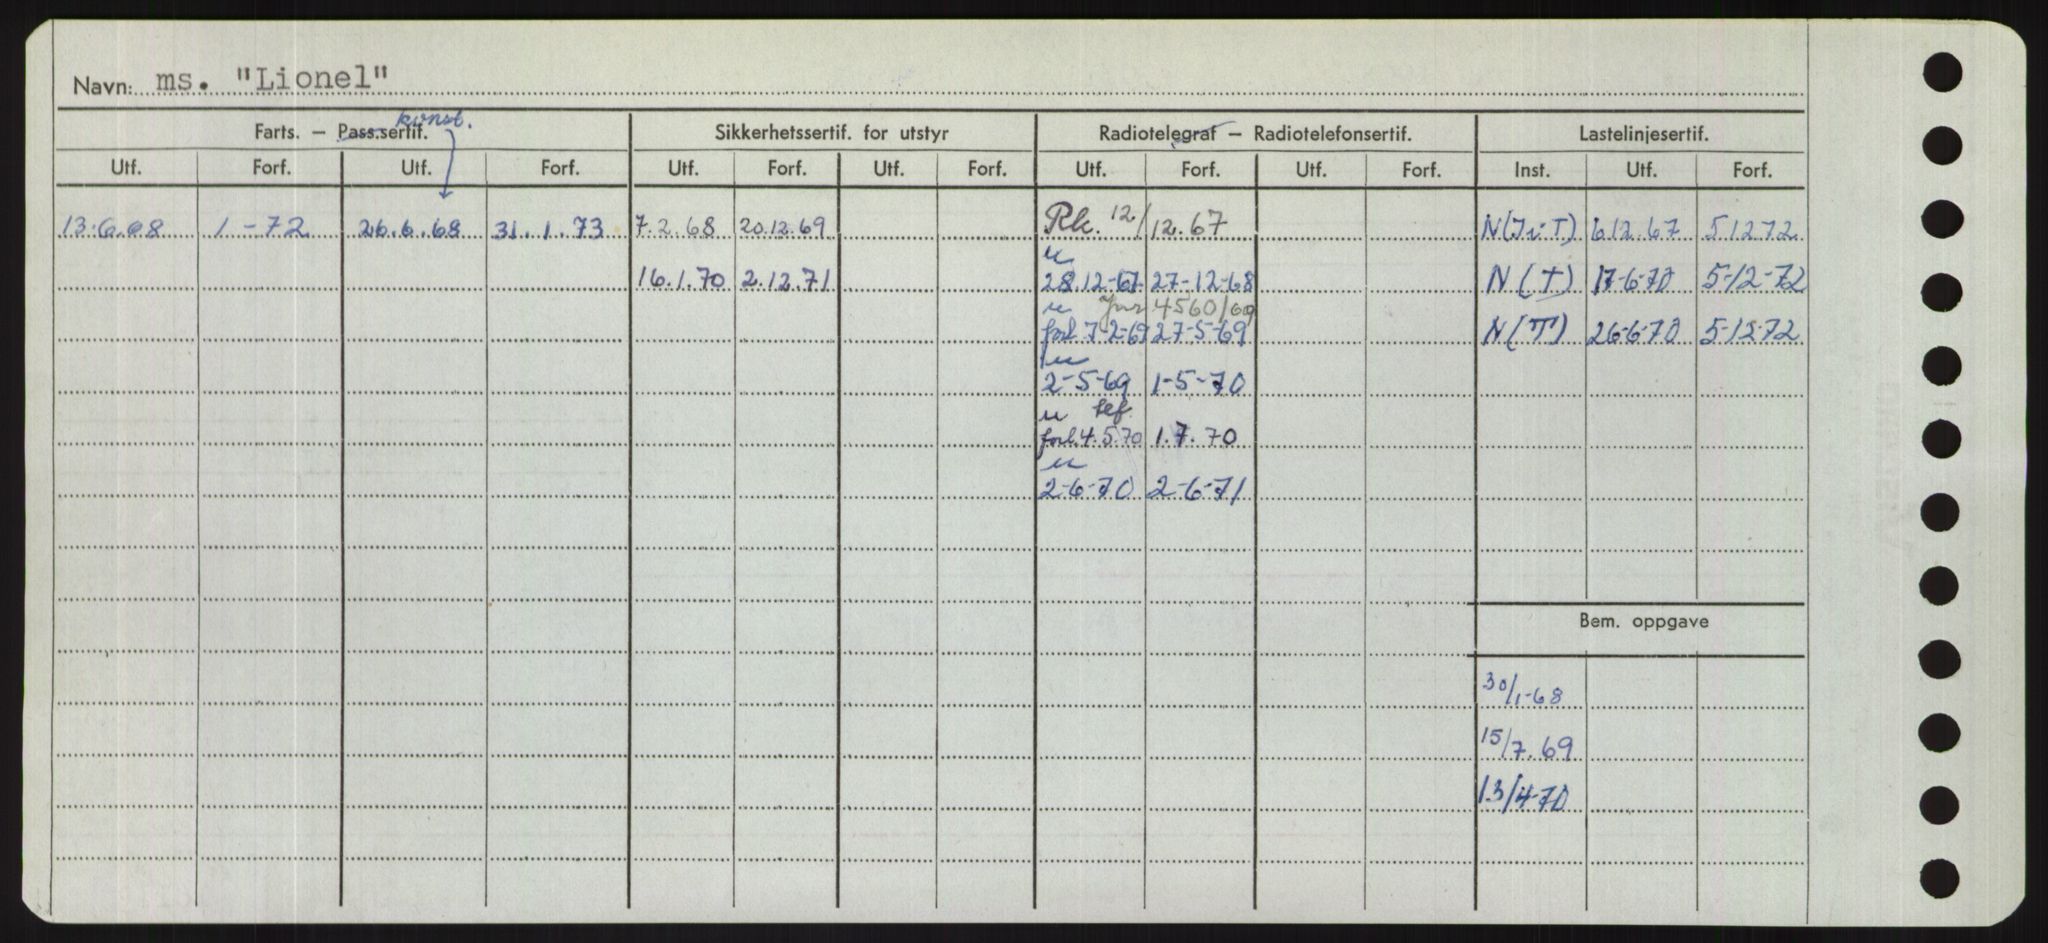 Navn: ms. "Lionel"
konst.
Farts. – Pass.sertif. Sikkerhetssertif. for utstyr Radiotelegraf – Radiotelefonsertif. Lastelinjesertif.
Utf. Forf. Utf. Forf. Utf. Forf. Utf. Forf. Utf. Forf. Utf. Forf. Inst. Utf. Forf.
13.6.68 1-72 26.6.68 31.1.73 7.2.68 20.12.69 Rk. 12/12.67 N(I.T) 6 12.67 5 12 72
u
16.1.70 2.12.71 28.12-67 27-12-68 N(T) 17-6-70 5-12-72
u 4560/69
forl 7-2-69 27-5-69 N(T) 26-6-70 5-12-72
u
2-5-69 1-5-70
u tlf.
forl. 4.5.70 1.7.70
u
2-6-70 2-6-71
Bem. oppgave
30/1-68
15/7.69
13/4-70